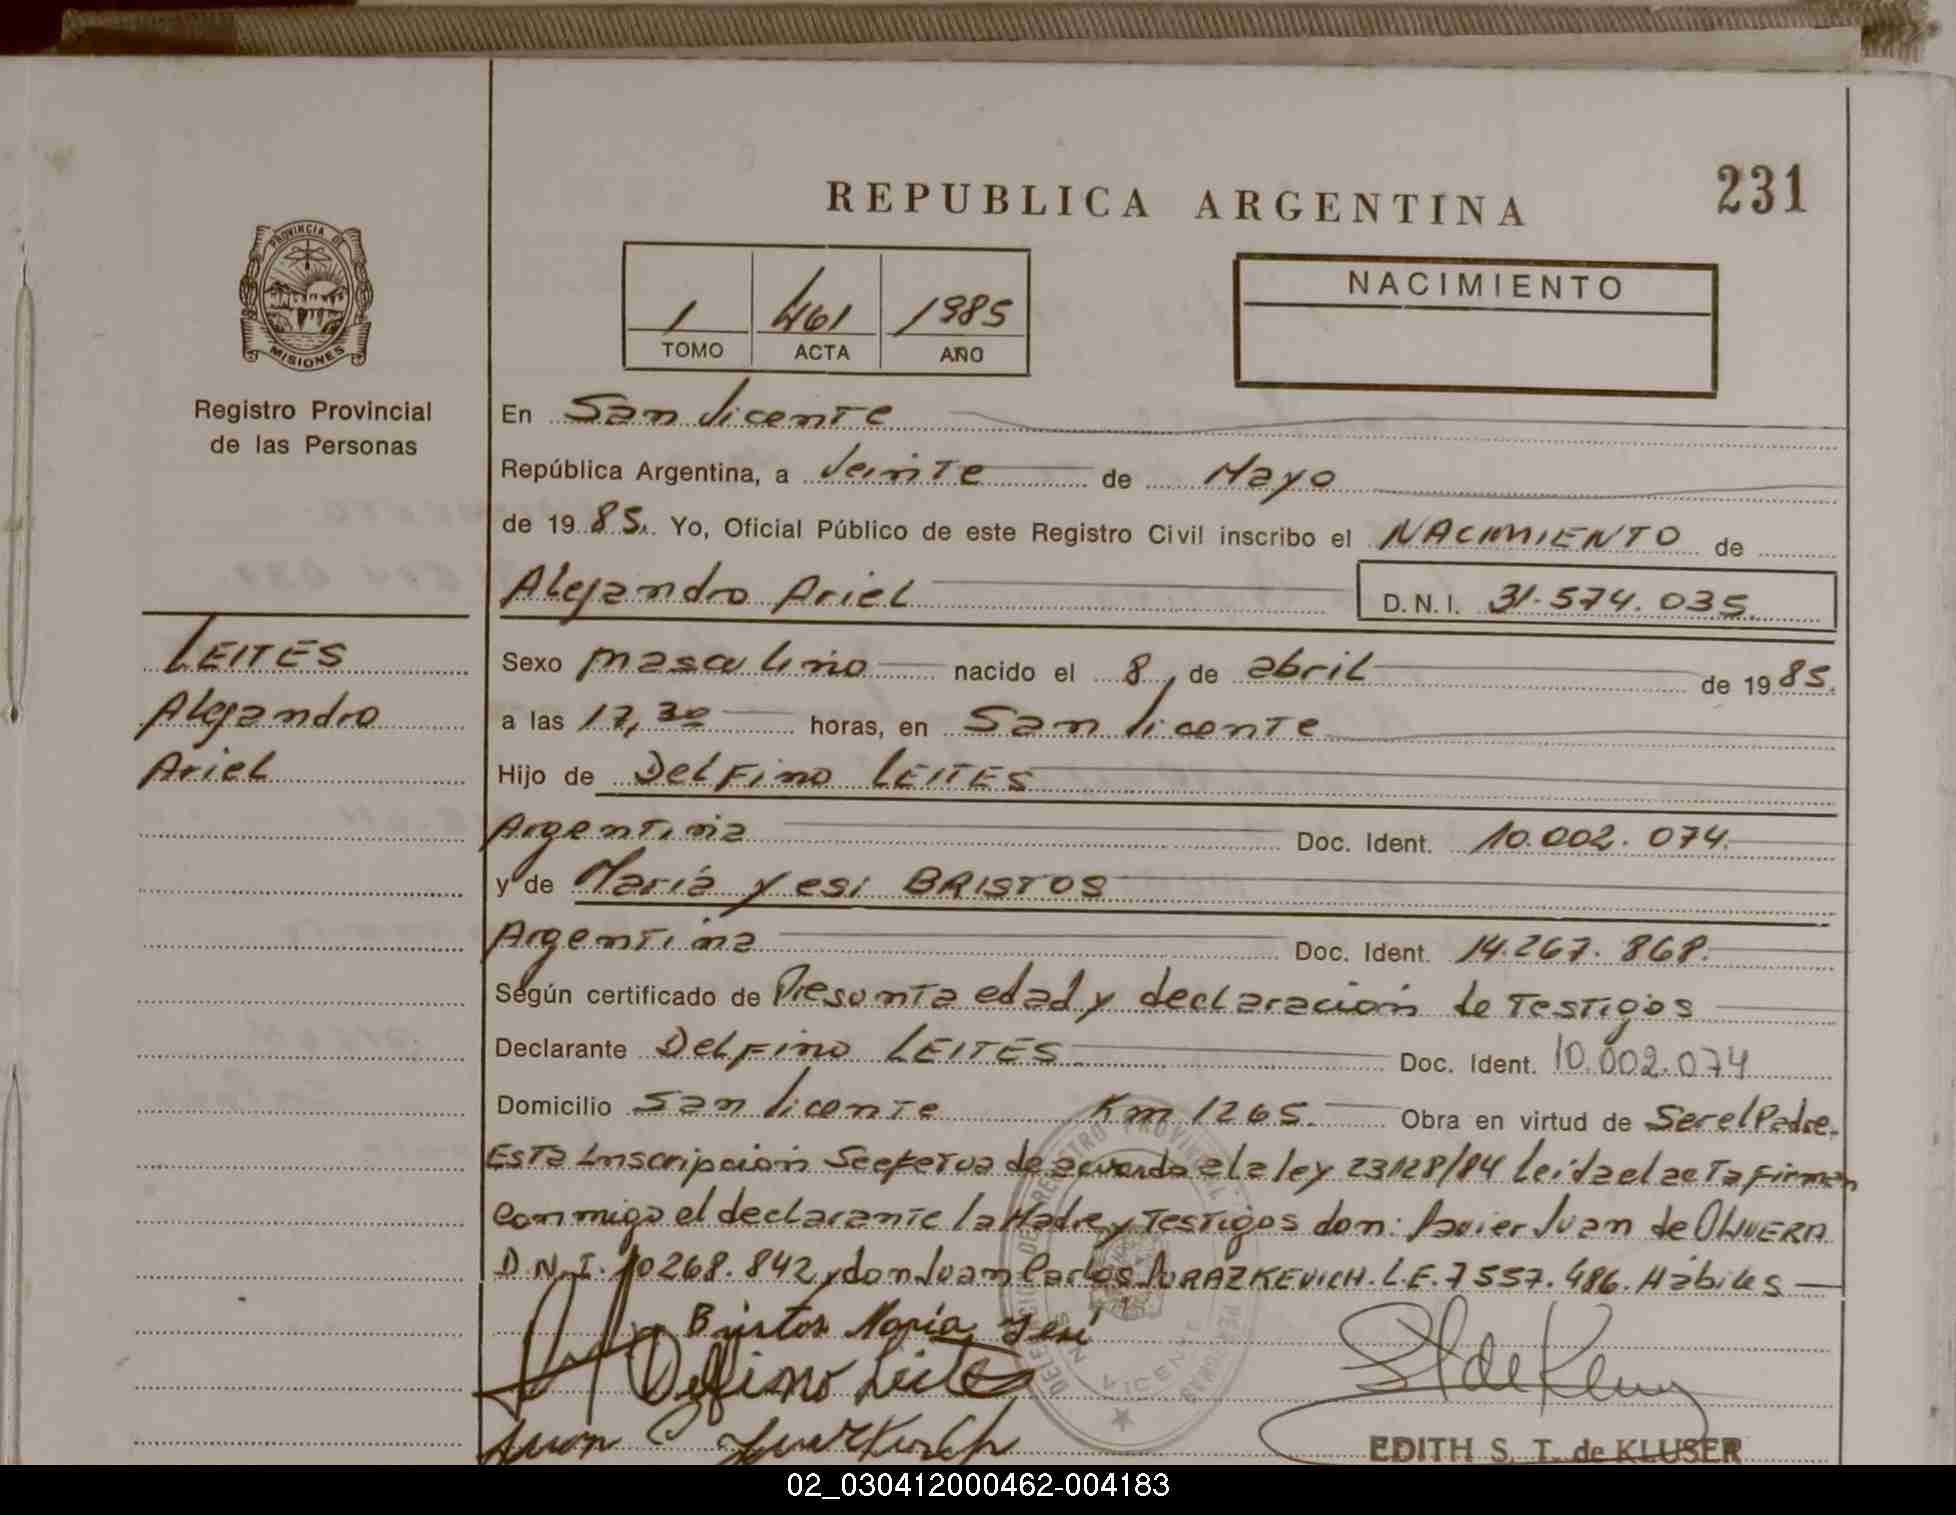 REPUBLICA ARGENTINA
231
PROVINCIA DE
MISIONES
Registro Provincial
de las Personas
1 461 1985
TOMO ACTA AÑO
NACIMIENTO
En San Vicente
República Argentina, a Veinte de Mayo
de 19 85. Yo, Oficial Público de este Registro Civil inscribo el NACIMIENTO de
Alejandro Ariel D.N.I. 31.574.035.
LEITES
Alejandro
Ariel
Sexo masculino nacido el 8 de abril de 19 85.
a las 17,30 horas, en San Vicente
Hijo de Delfino LEITES
Argentina Doc. Ident. 10.002.074.
y de María Yesi BRISTOS
Argentina Doc. Ident. 14.267.868.
Según certificado de Presunta edad y declaración de Testigos
Declarante Delfino LEITES Doc. Ident. 10.002.074
Domicilio San Vicente Km 1265. Obra en virtud de Ser el Padre.
Esta Inscripción Se efetua de acuerdo a la ley 23128/84 Leida el acta firman
Conmigo el declarante la Madre y Testigos don: Javier Juan de OLIVERA
D.N.I. 10268.842 y don Juan Carlos L.E. 7557.486. Hábiles
Bristos María Yesi
Delfino Leites
Juan C
EDITH S. T. de KLUSER
02_030412000462-004183